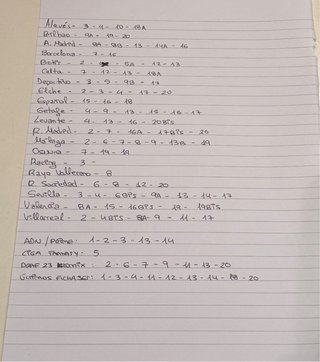 Alavés - 3 - 4 - 10 - 18A
Bilbao - 9A - 19 - 20
A. Madrid - 8A - 9B - 13 - 14A - 16
Barcelona - 7 - 16
Betis - 2 - 5A - 12 - 13
Celta - 7 - 12 - 13 - 18A
Deportivo - 3 - 5 - 9B - 17
Elche - 2 - 3 - 4 - 17 - 20
Espanol - 15 - 16 - 18
Getafe - 4 - 9 - 13 - 15 - 16 - 17
Levante - 4 - 13 - 16 - 20Bis
R. Madrid - 2 - 7 - 16A - 17Bis - 20
Málaga - 2 - 6 - 7 - 8 - 9 - 13B - 19
Osasuna - 7 - 14 - 19
Racing - 3 -
Rayo Vallecano - 8
R. Sociedad - 6 - 8 - 12 - 20
Sevilla - 3 - 4 - 6Bis - 9A - 13 - 14 - 17
Valencia - 8A - 15 - 16Bis - 18 - 19Bis
Villarreal - 2 - 4Bis - 8A - 9 - 11 - 17
ADN / : 1 - 2 - 3 - 13 - 14
LIGA FANTASY: 5
23 : 2 - 6 - 7 - 9 - 11 - 13 - 20
Últimos FICHAJES: 1 - 3 - 4 - 11 - 12 - 13 - 14 - - 20